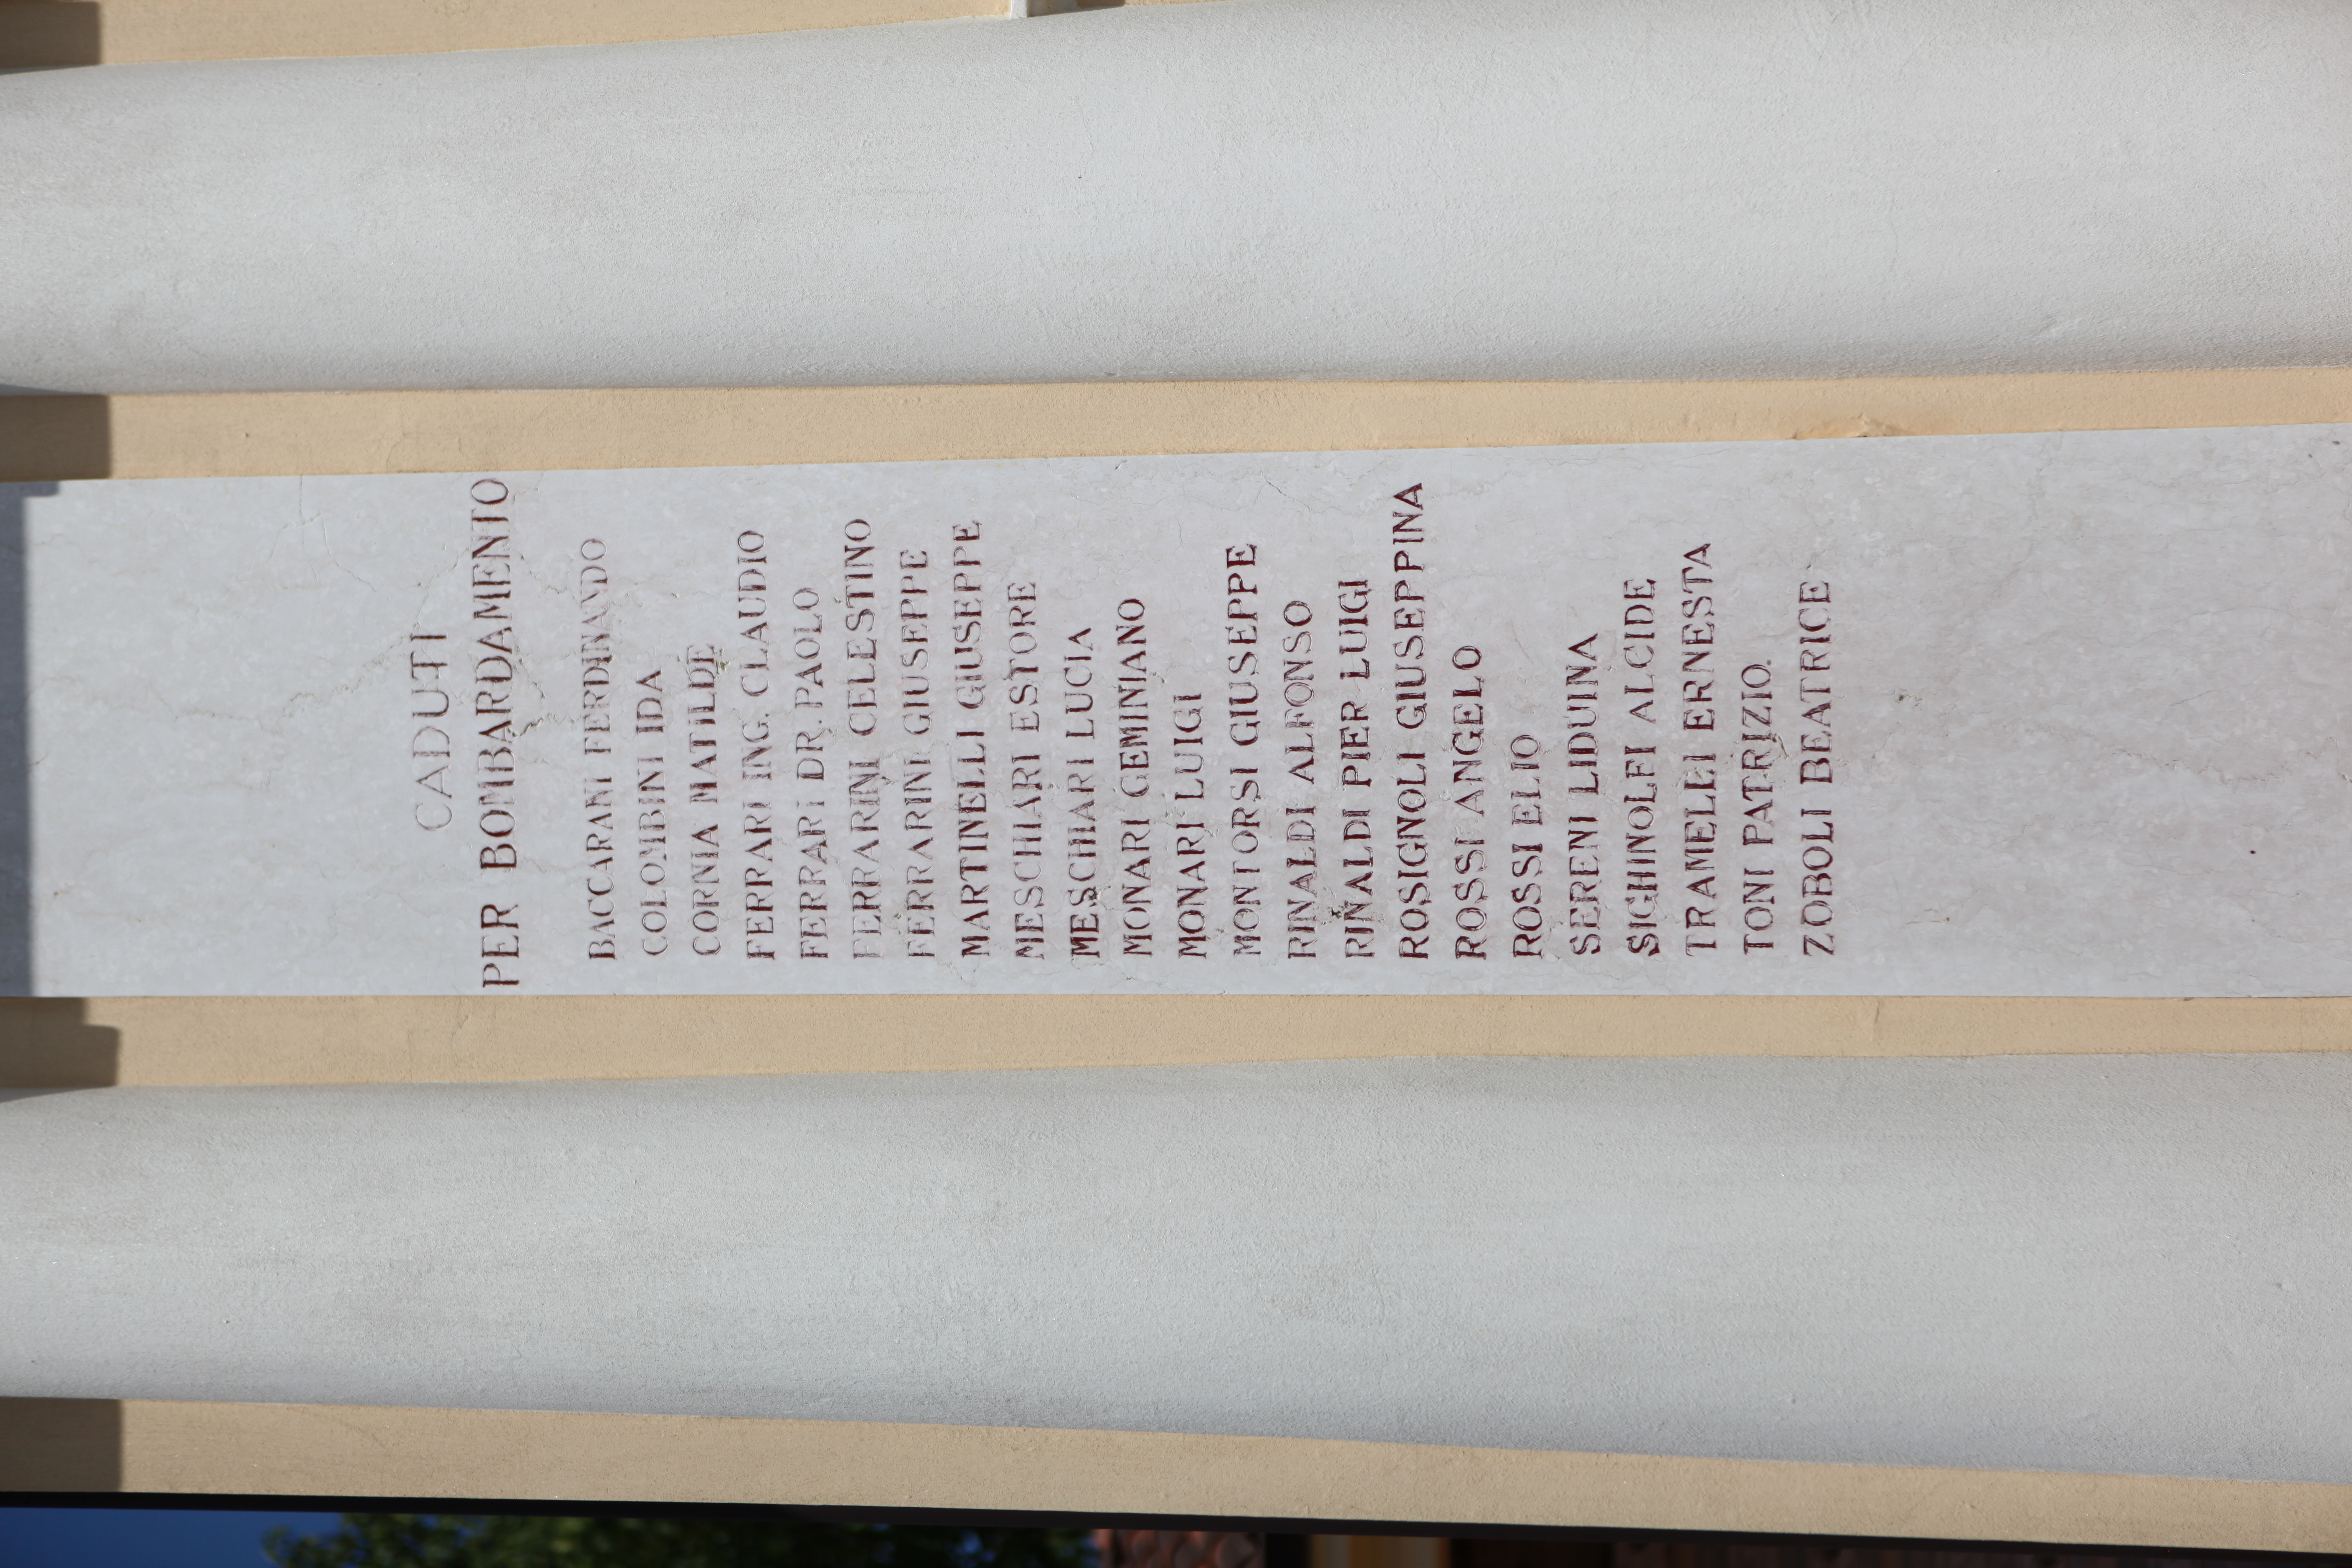 CADUTI
PER BOMBARDAMENTO
BACCARANI FERDINANDO
COLOMBINI IDA
CORNIA MATILDE
FERRARI ING. CLAUDIO
FERRARI DR. PAOLO
FERRARINI CELESTINO
FERRARINI GIUSEPPE
MARTINELLI GIUSEPPE
MESCHIARI ESTORE
MESCHIARI LUCIA
MONARI GEMINIANO
MONARI LUIGI
MONTORSI GIUSEPPE
RINALDI ALFONSO
RINALDI PIER LUIGI
ROSIGNOLI GIUSEPPINA
ROSSI ANGELO
ROSSI ELIO
SERENI LIDUINA
SIGHINOLFI ALCIDE
TRAMELLI ERNESTA
TONI PATRIZIO
ZOBOLI BEATRICE